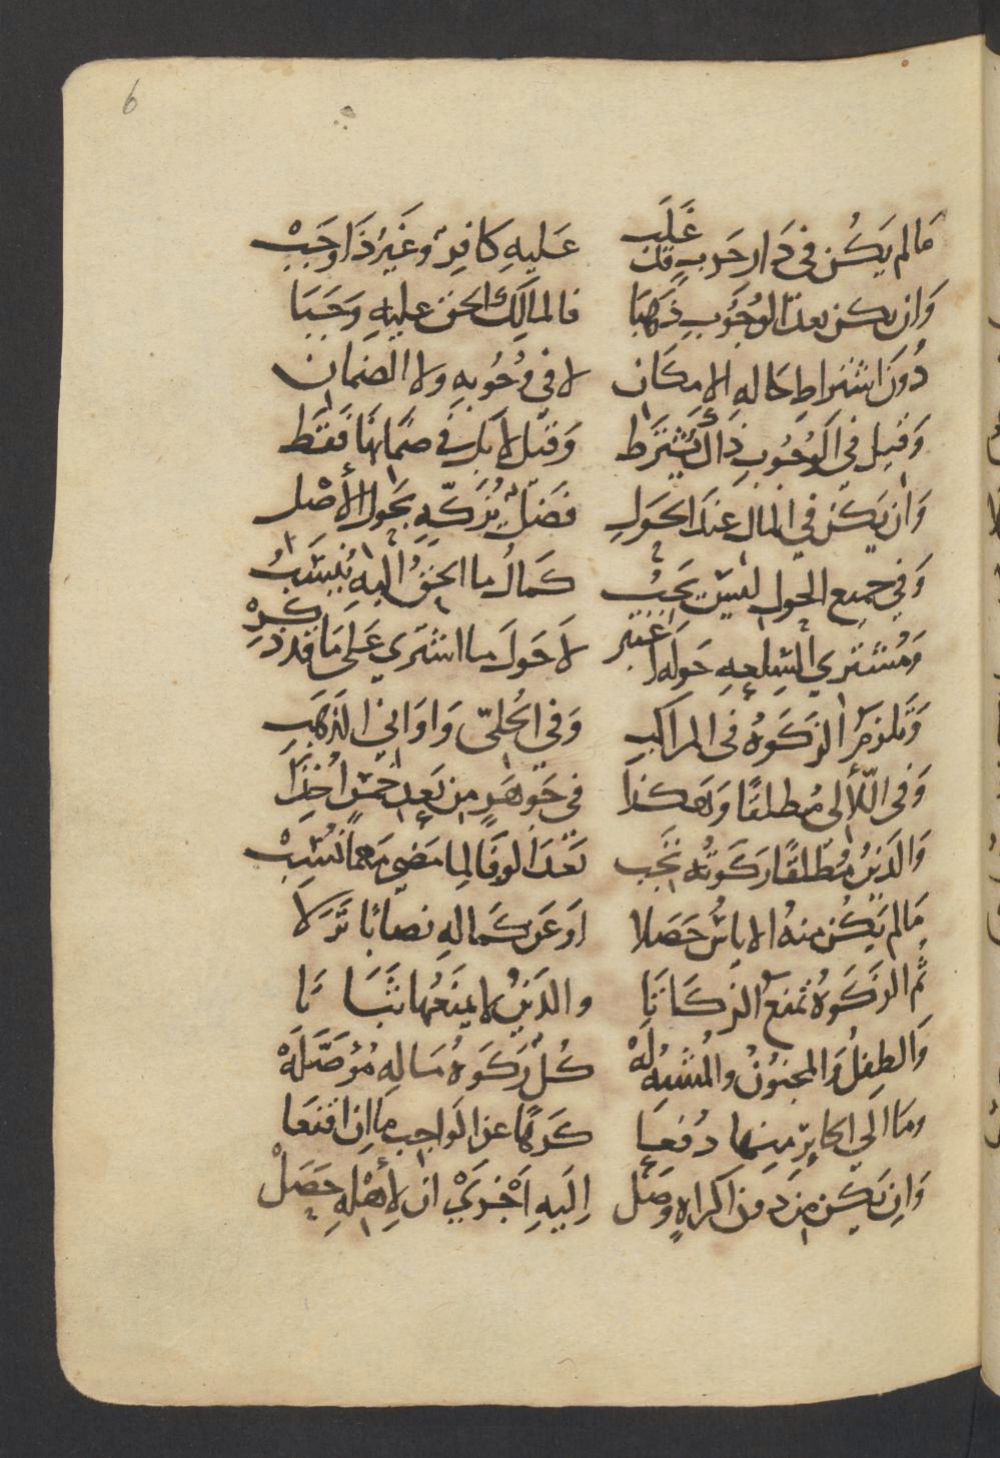 6
مَالم يَكُن فى دَارِ حَربٍ غَلَب عَليهِ كَافِرٌ وغَيرُ ذَا وَجَبْ
وَان يكن بعد الوُجُوبِ ذَهَبَا فالمالِكُ الحق عليهِ وَجَبَا
دُونَ اشتراطِ حَالهِ الامكَان لا فى وُجُوبِهِ ولا الضمان
وَقيل في الوُجُوبِ ذَاكَ يُشتَرط وَقيل لا بَل في ضمَانها فَقَط
وَان يَكن في المالِ عندَ الحَولِ فضلٌ يُزَكّهِ بحَولِ الأصْلِ
وَفي جميع الحول ليس يَجبُ كمَالُ ما الحقُ اليهِ يُنسَبُ
وَمُشتَري السِلعهِ حَولهَا اعتبر لاَ حَولَ ما اشترَي عَلى مَا قد ذكِرْ
وَتلزمُ الزكَوهُ فى المراكبِ وَفي الحُليّ وَاوَاني الذهَبِ
وَفى اللآلى مُطلقًا وَهَكذا في جَوهَرٍ مِن بَعدِ خمسٍ اُخِذَا
وَالدَينُ مُطلقًا زكَوتُه تجَب بَعدَ الوفَا لِما مَضي مهما نُسِبْ
مَالم يَكُن منهُ الاياسُ حَصَلا اَو عَن كمالهِ نصَابًا نَزَلاَ
ثُم الزكَوهُ تمنَعُ الزكَاتَا والدَينُ لا يمنَعُها ثبَاتَا
وَالطِفلُ وَالمجنوُنُ والمُشبِهُ لَهْ كُلٌ زكَوهُ مَالهِ مُؤَصَّلَهْ
ومَا الي الحَايرِ منها دُفعَا كَرهًا عن الواجبِ ما إن اقنعَا
وَان يَكُن مِن دون اكراهٍ وصَل اِليهِ اَجْزَيْ ان لِأهْلهِ حَصَلْ